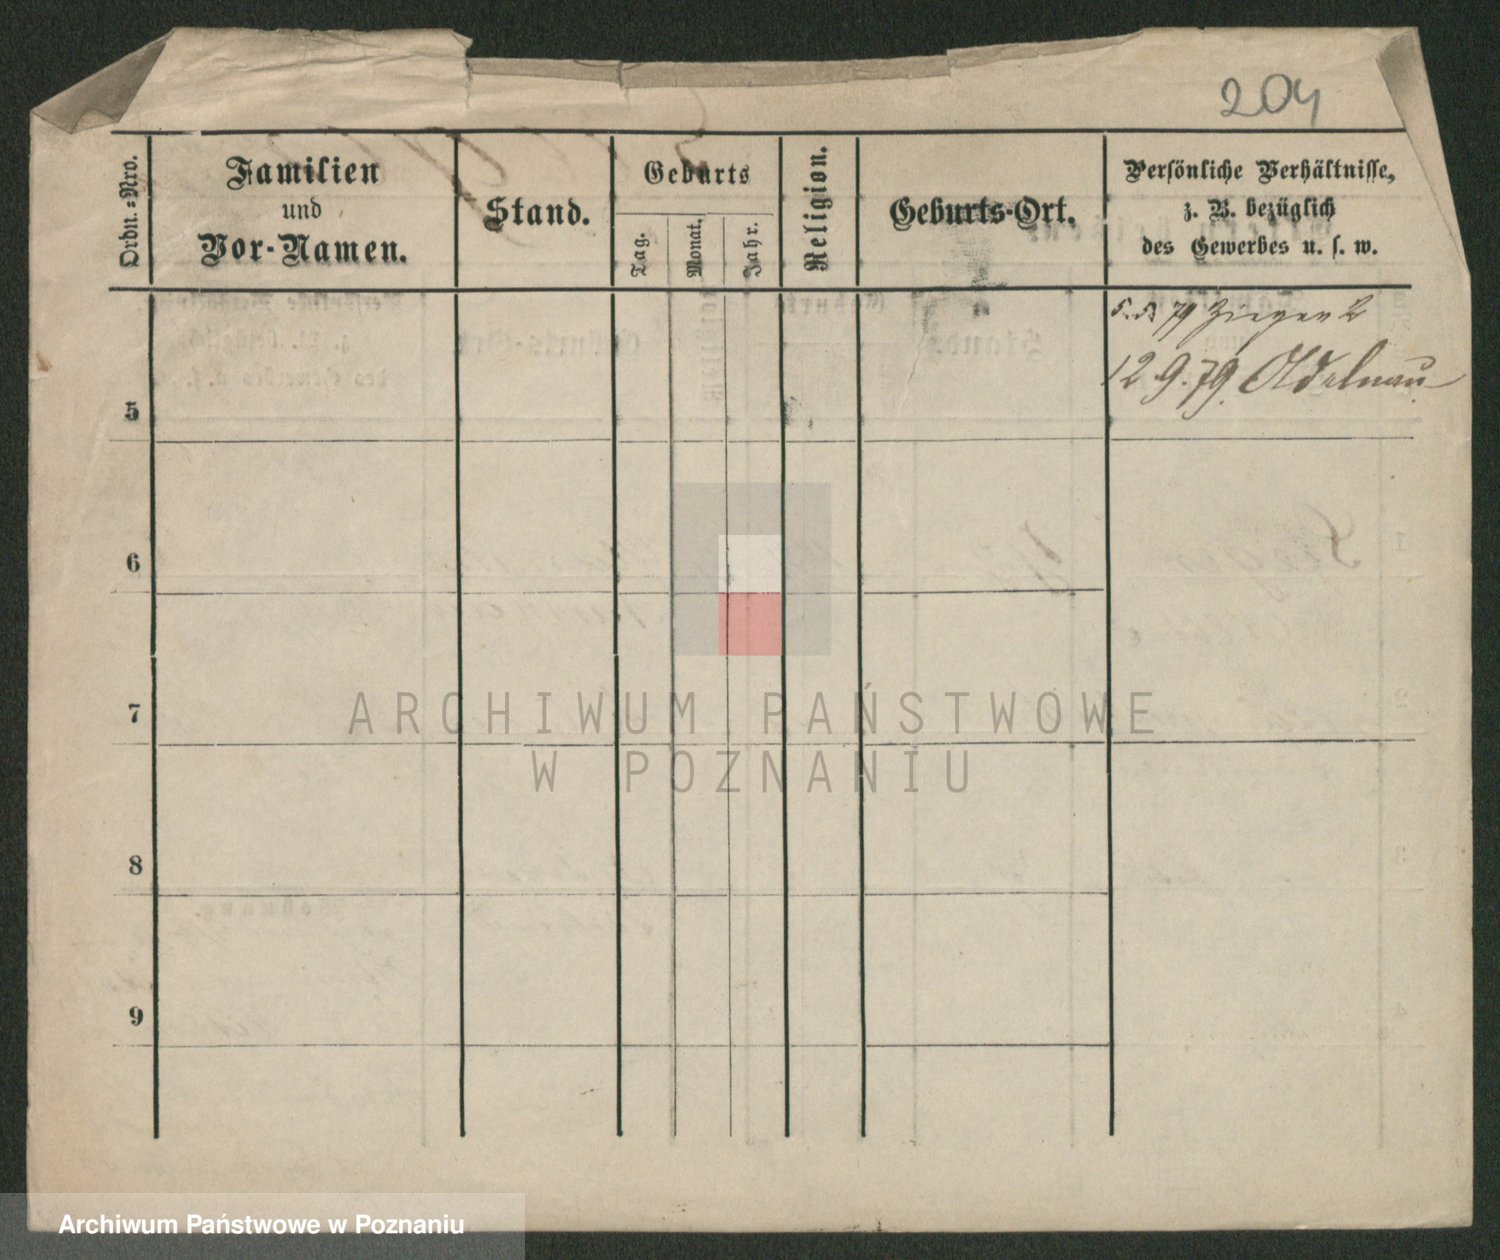 204
Ordn.=Nro.
Familien
und
Vor-Namen.
Stand.
Geburts
Tag.
Monat.
Jahr.
Religion.
Geburts-Ort.
Persönliche Verhältnisse,
z. B. bezüglich
des Gewerbes u. s. w.
79
12 9. 79. Adelnau
5
6
7
8
9
ARCHIWUM PAŃSTWOWE
W POZNANIU
Archiwum Państwowe w Poznaniu